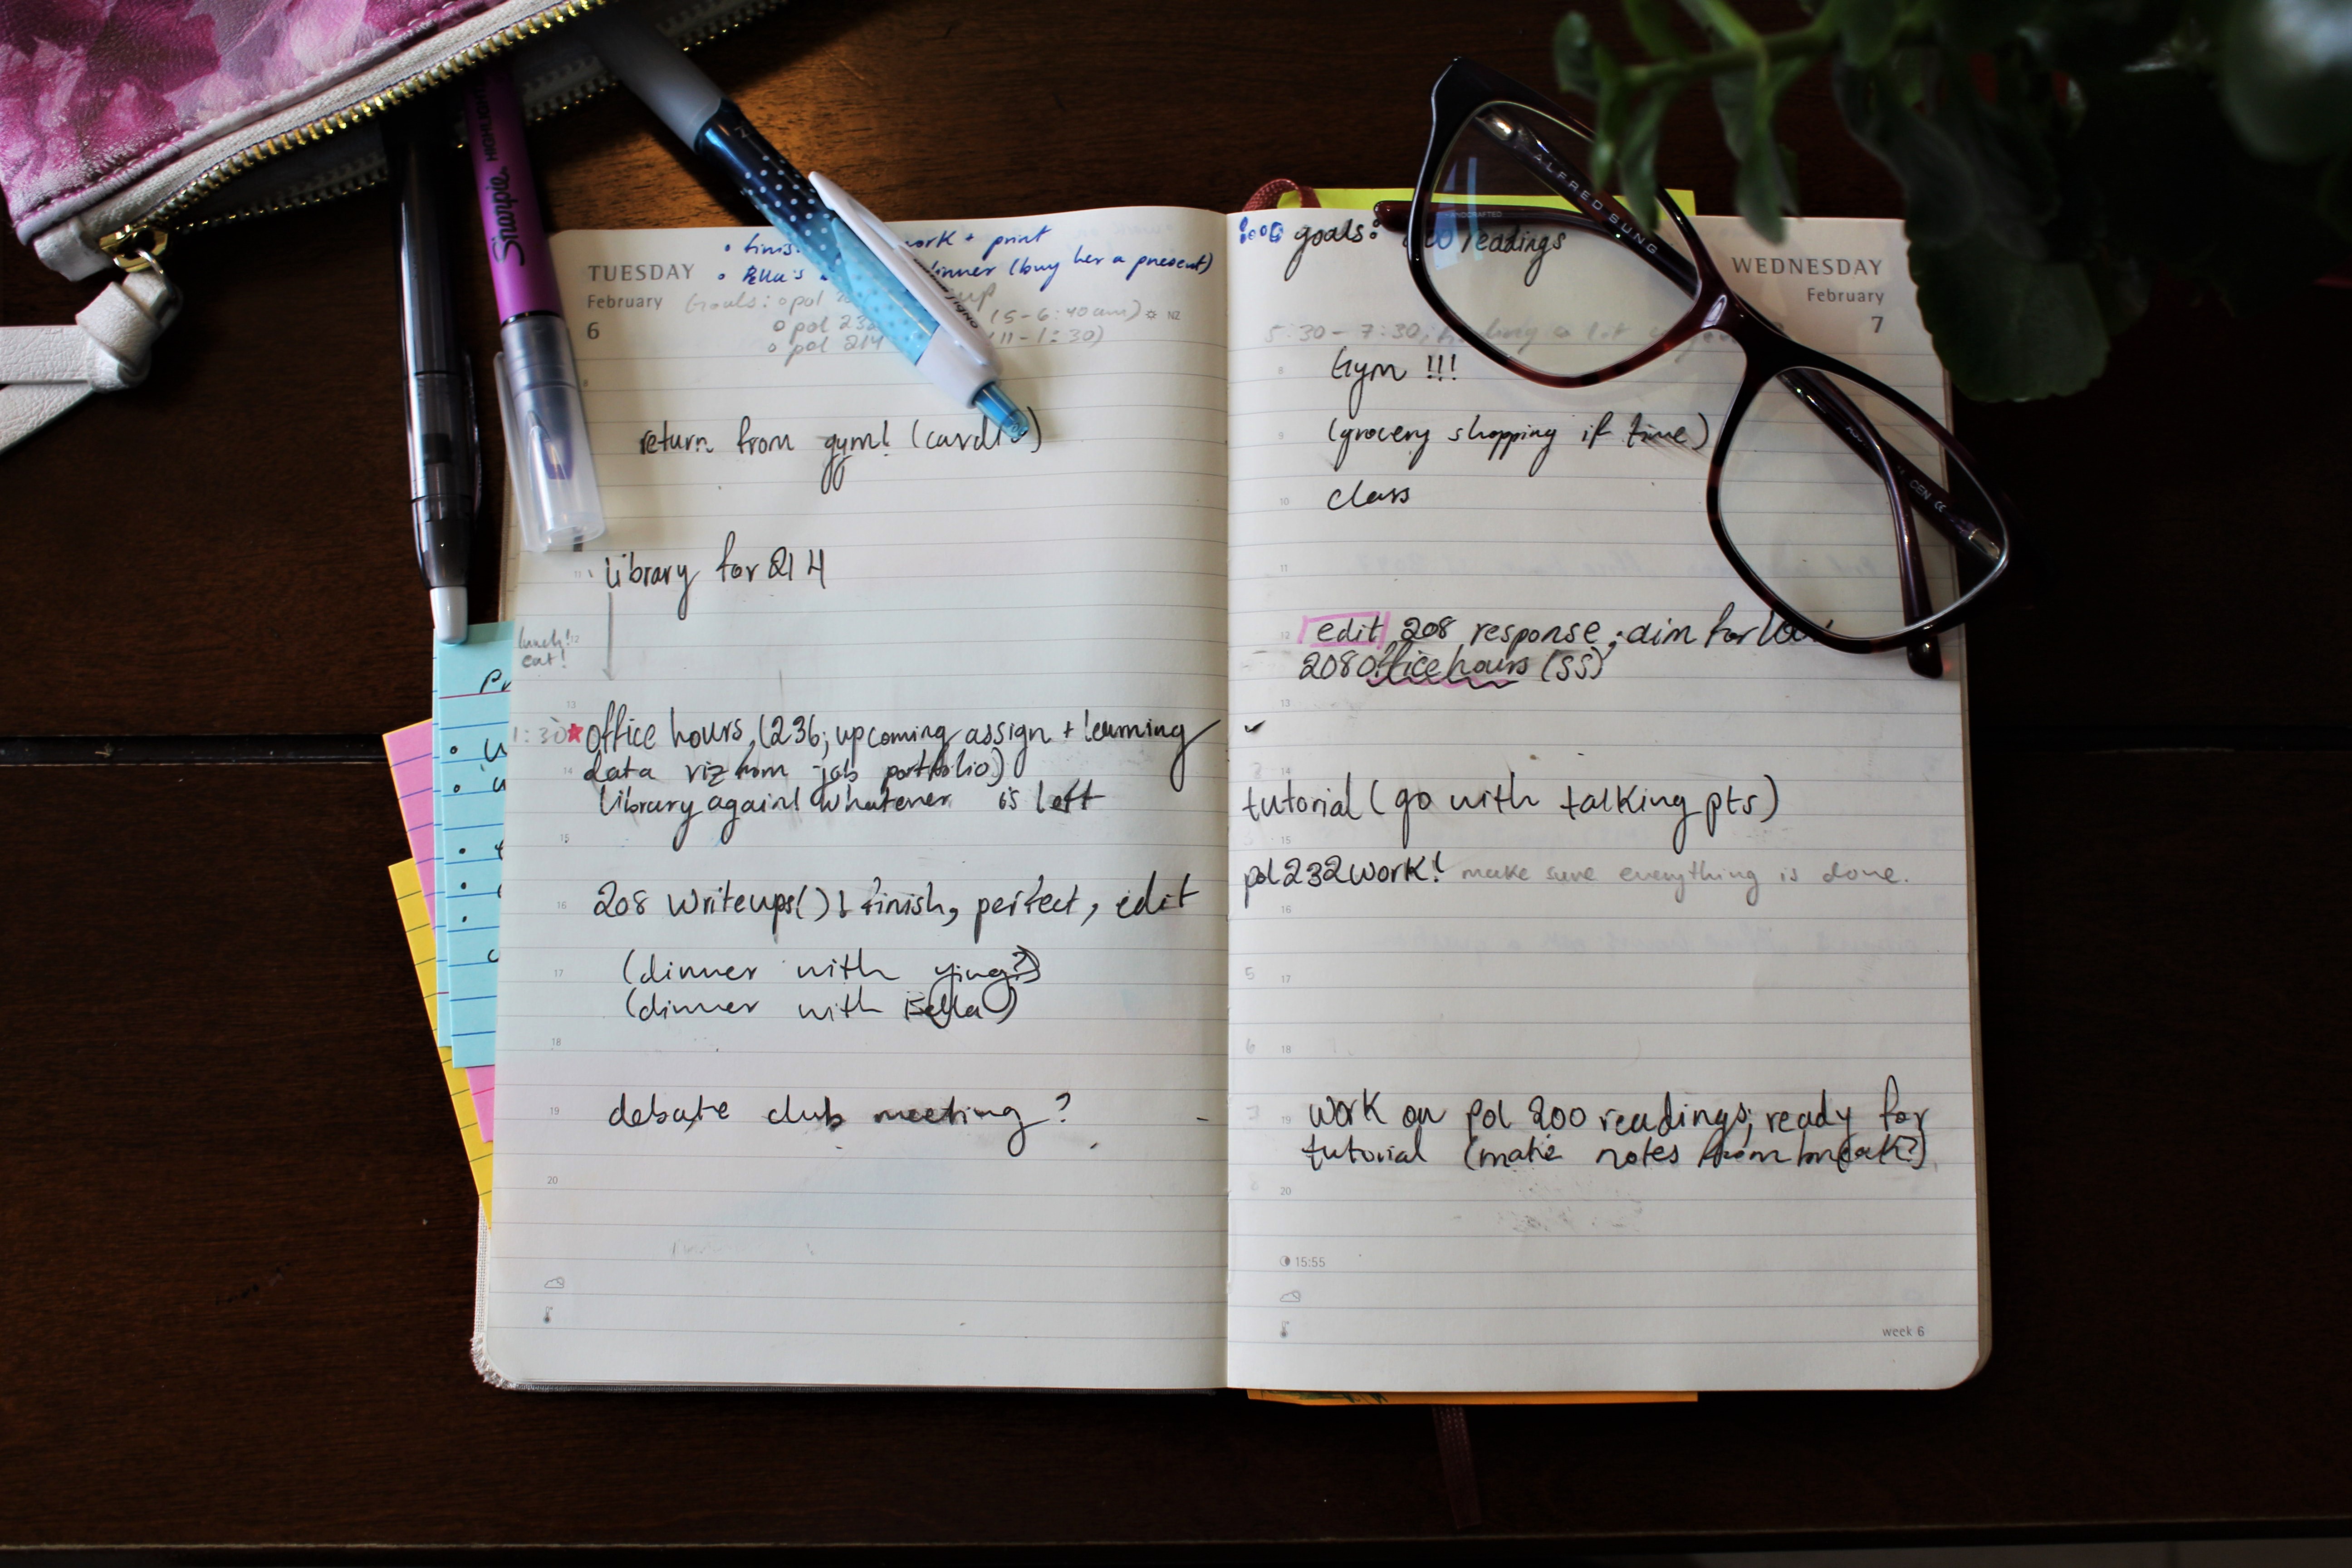 Sharpie HIGHLIGHT
signo
ALFRED SUNG
HANDCRAFTED
TUESDAY
February
6
work + print
dinner (buy her a present)
Goals: pol
pol 214
(5-6:40am) NZ
(11-1:30)
return from gym! (cardio)
11 library for 214
lunch! 12
eat!
13
1:30 office hours (236; upcoming assign + learning
14 data viz from job portfolio)
library again! whatever is left
15
16 208 writeups() ! finish, perfect, edit
17 (dinner with ying?)
(dinner with Bella)
18
19 debate club meeting?
20
goals: readings
WEDNESDAY
February
7
5:30 - 7:30: a lot
8 Gym !!!
9 (grocery shopping if time)
10 class
11
12 edit 208 response; aim for
208 office hours (SS)
13
14
tutorial (go with talking pts)
15
pol 232 work! make sure everything is done.
16
5 17
6 18
7 19 work on pol 200 readings; ready for
tutorial (make notes from break?)
20
15:55
week 6